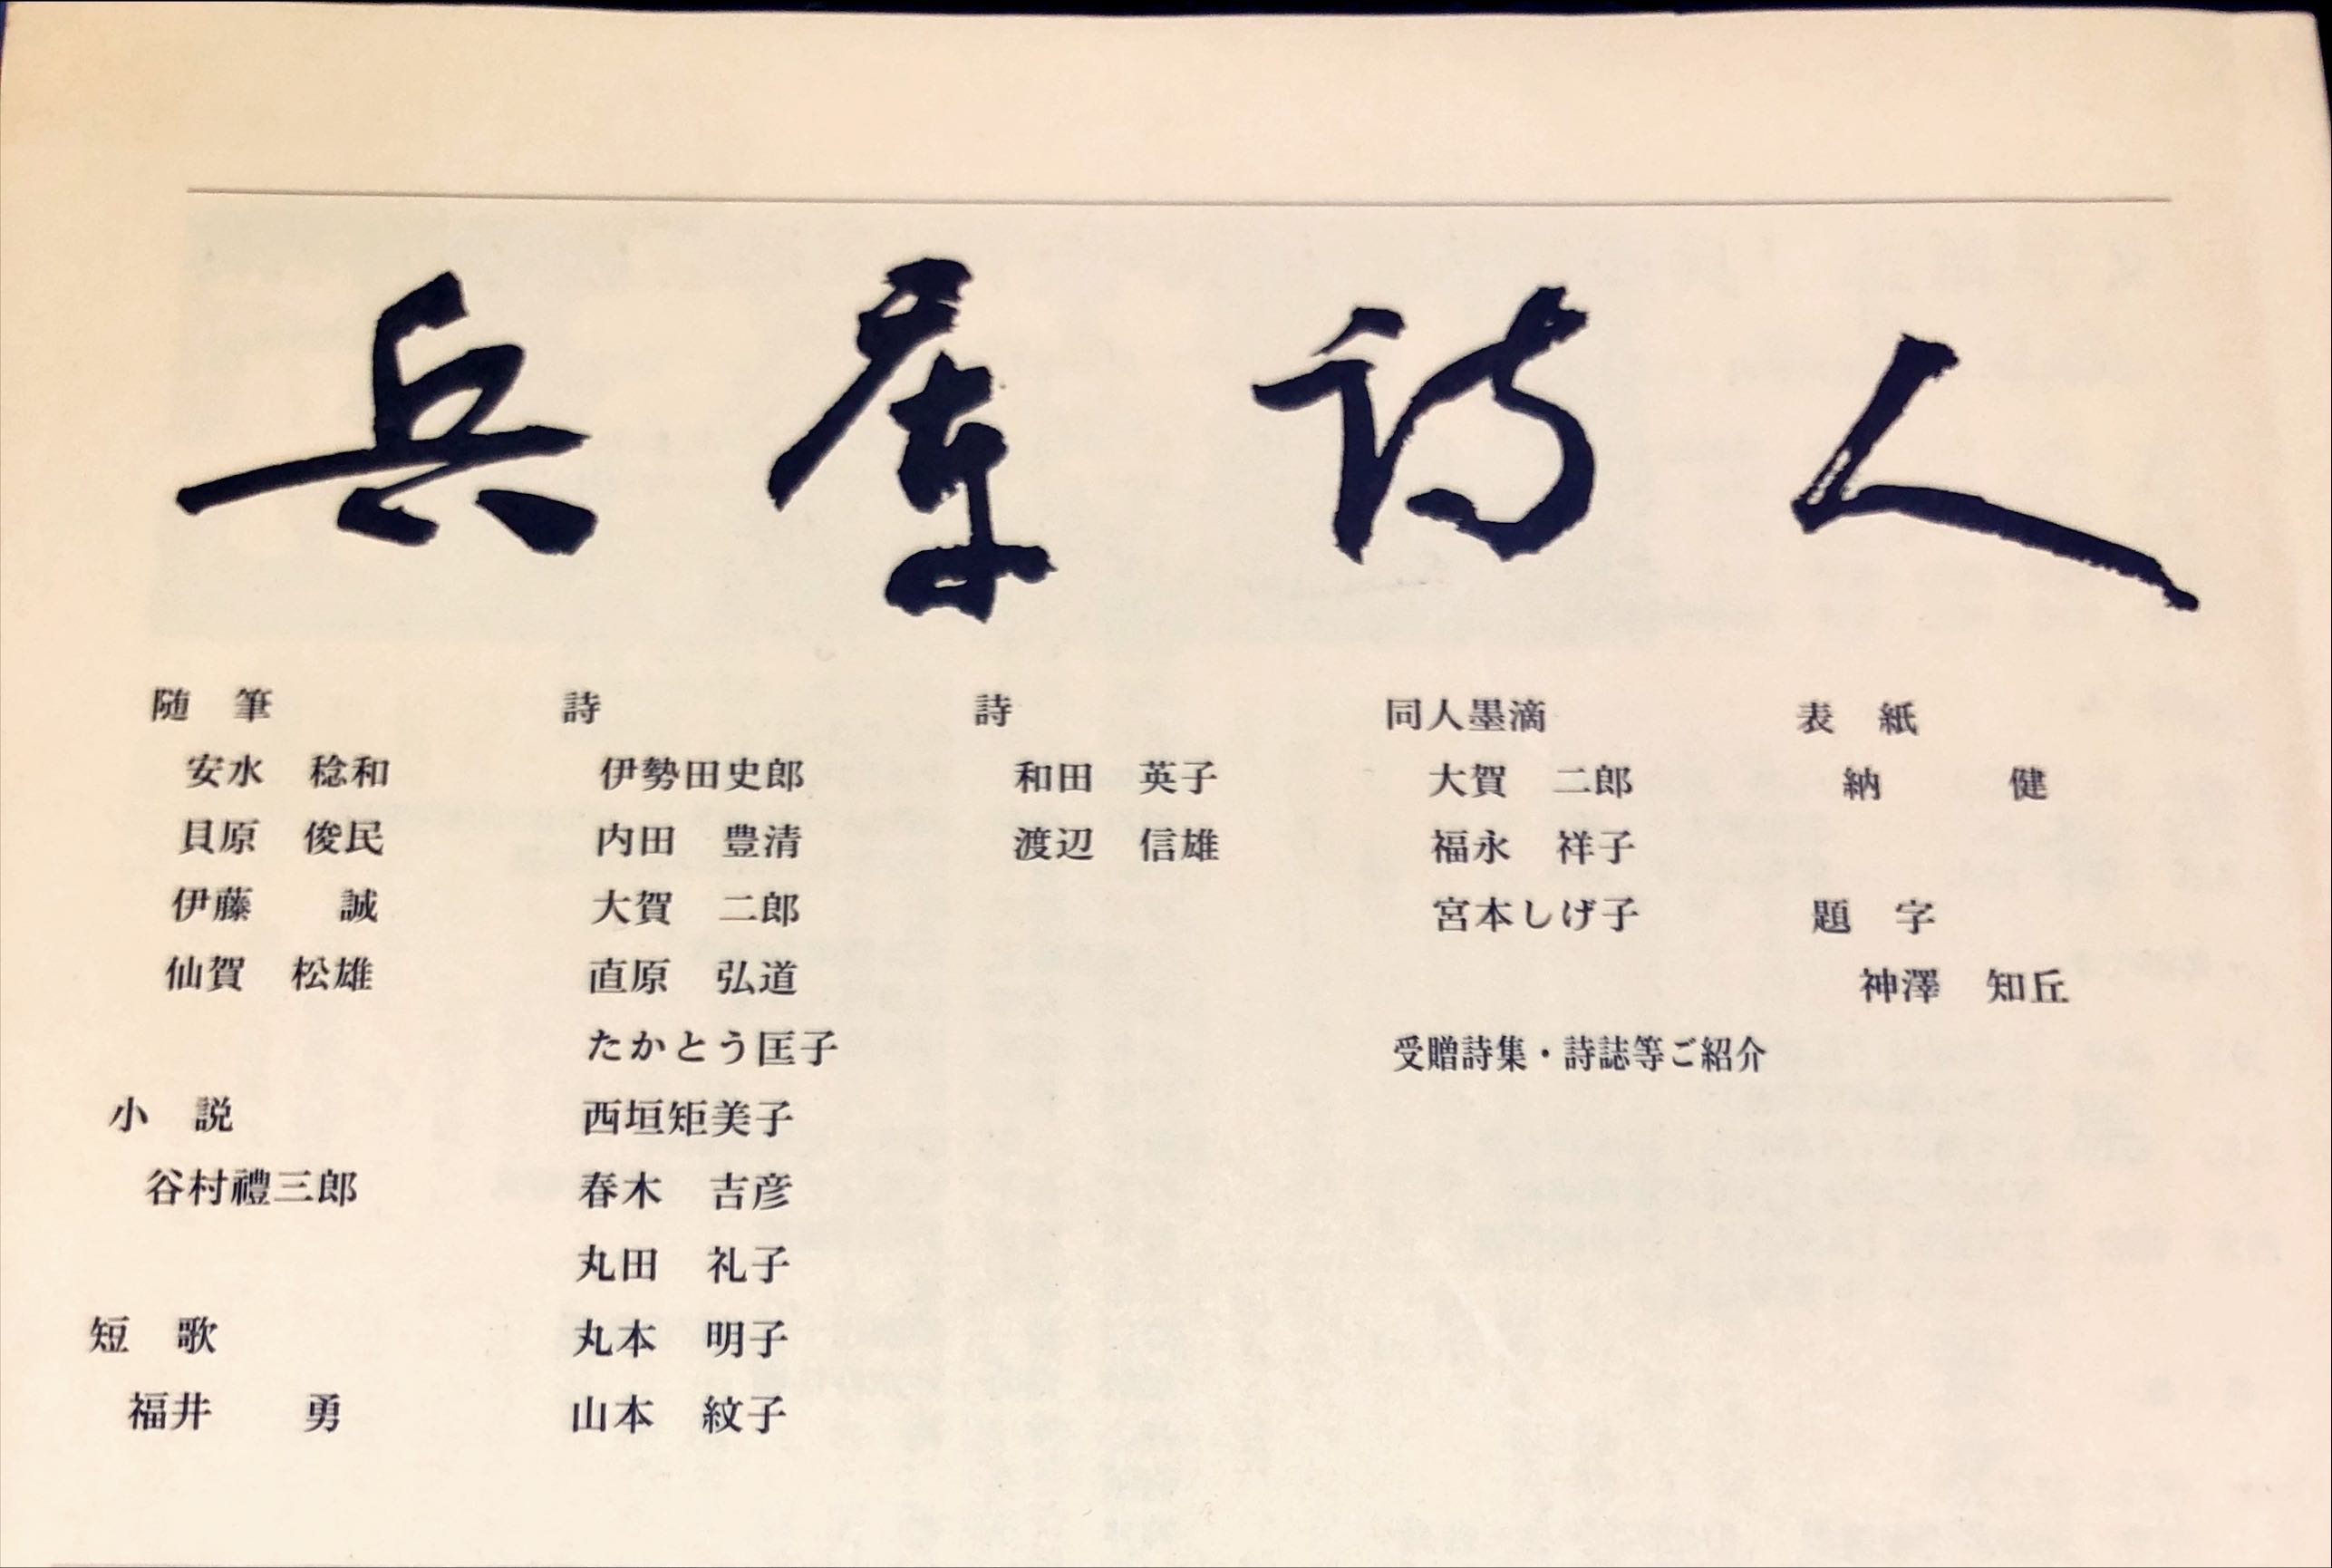 兵庫詩人
随　筆
安水　稔和
貝原　俊民
伊藤　　誠
仙賀　松雄
小　説
谷村禮三郎
短　歌
福井　　勇
詩
伊勢田史郎
内田　豊清
大賀　二郎
直原　弘道
たかとう匡子
西垣矩美子
春木　吉彦
丸田　礼子
丸本　明子
山本　紋子
詩
和田　英子
渡辺　信雄
同人墨滴
大賀　二郎
福永　祥子
宮本しげ子
受贈詩集・詩誌等ご紹介
表　紙
納　　　健
題　字
神澤　知丘